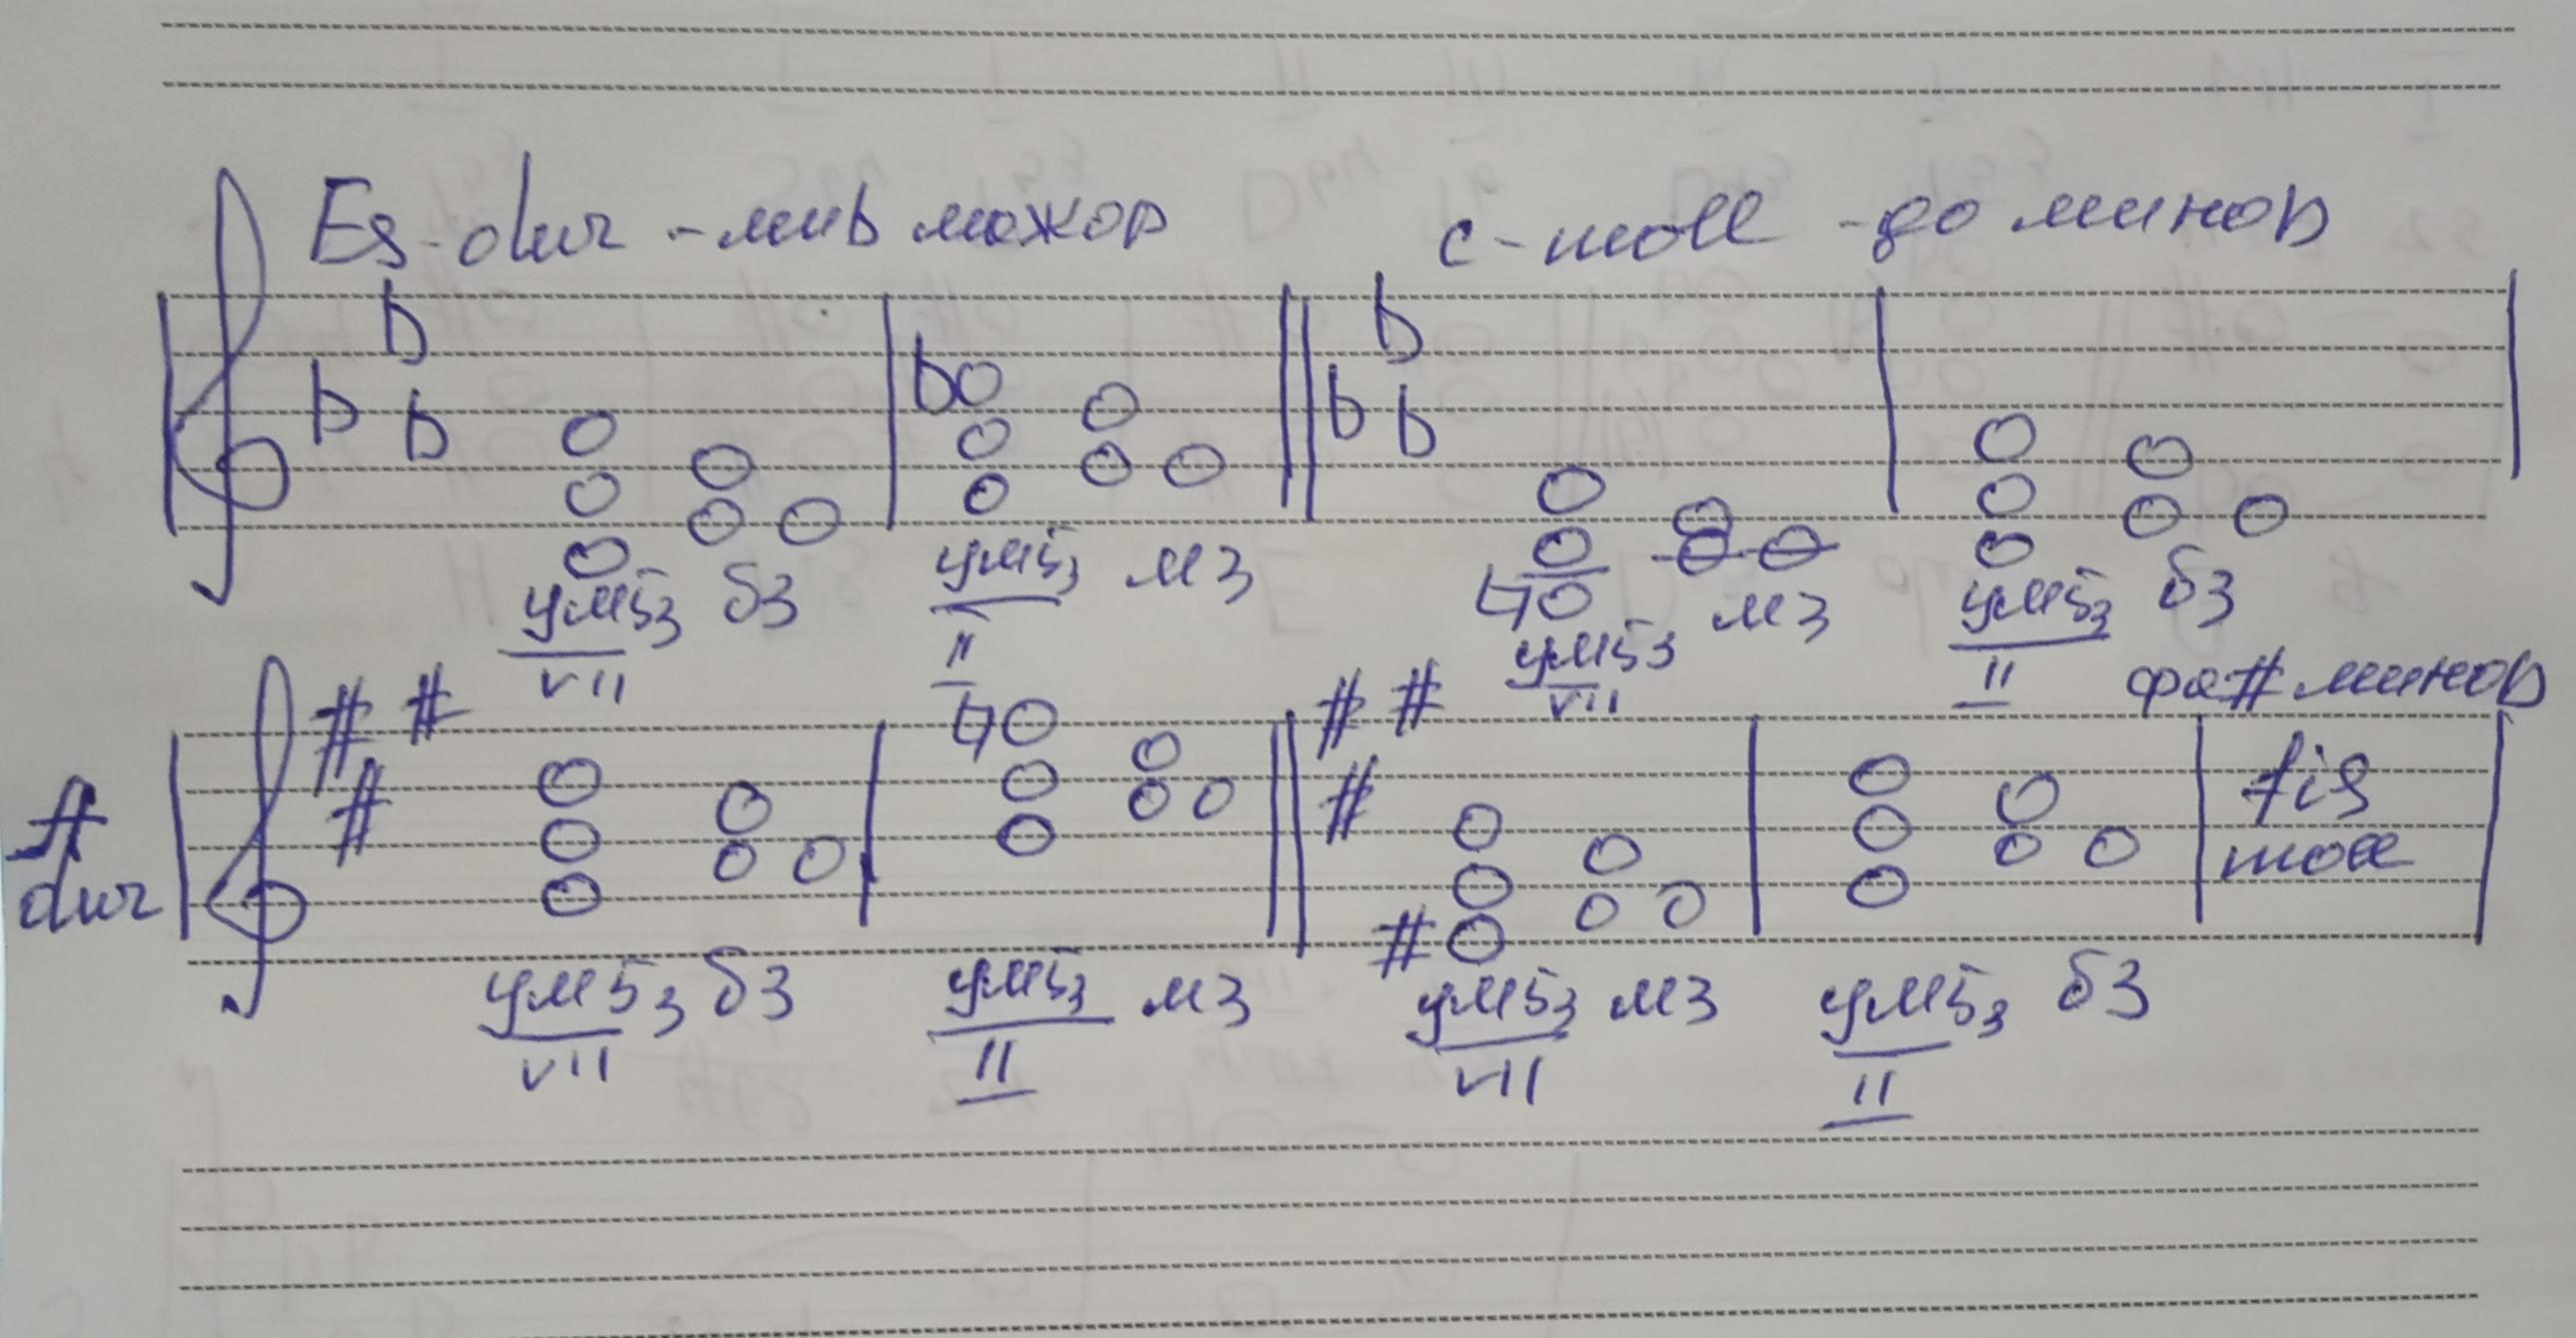 Es-dur - миb мажор c-moll - до минор
ум53 б3 ум53 м3 ум53 м3 ум53 б3
VII II VII II
фа# минор
A dur
fis moll
ум53 б3 ум53 м3 ум53 м3 ум53 б3
VII II VII II